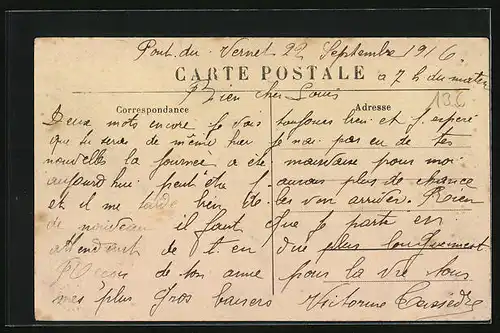 Pont. du. Vernet 22 Septembre 1916.
CARTE POSTALE
à 7 h du matin
136
Bien cher Louis
Correspondance
Adresse
Deux mots encore je vais toujours bien et j espère
que tu sera de même hier je n ai pas eu de tes
nouvelles la journée a été mauvaise pour moi
aujourd hui peut être j aurais plus de chance
et il me tarde bien de les voir arriver. Rien
de nouveau il faut que je parte en
attendant de t en dire plus longuement
Reçois de ton amie pour la vie tous
mes plus Gros baisers Victorine